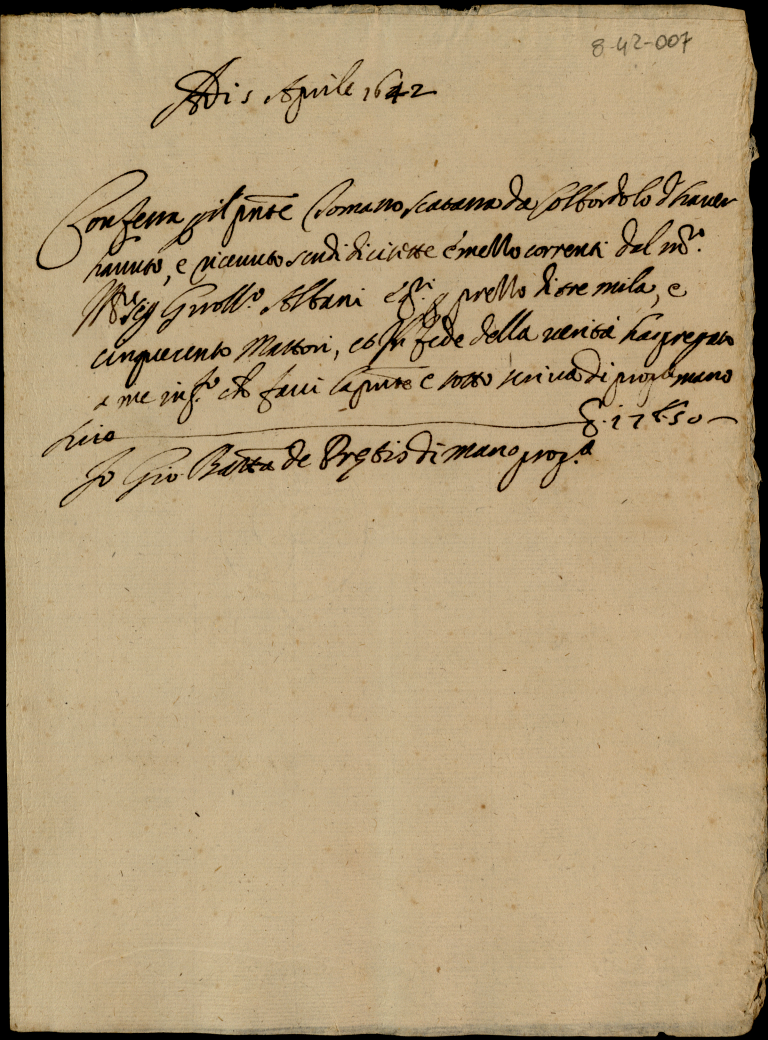 8-42-007
Adi s Aprile 1642
Confessa p il pnte Tomasso da Colbordolo d'haver
havuto, e ricevuto scudi dicisette e mezzo correnti dal m.to
Ill.re Sig Giroll.o Albani e p prezzo di tre mila, e
cinquecento Mattoni, et In fede della verità ha pregato
a me inf.o ch facci la pnte e sotto scriva di propa mano
&. 17 b 50
Io Gio Batta de Pretis di mano prop.a